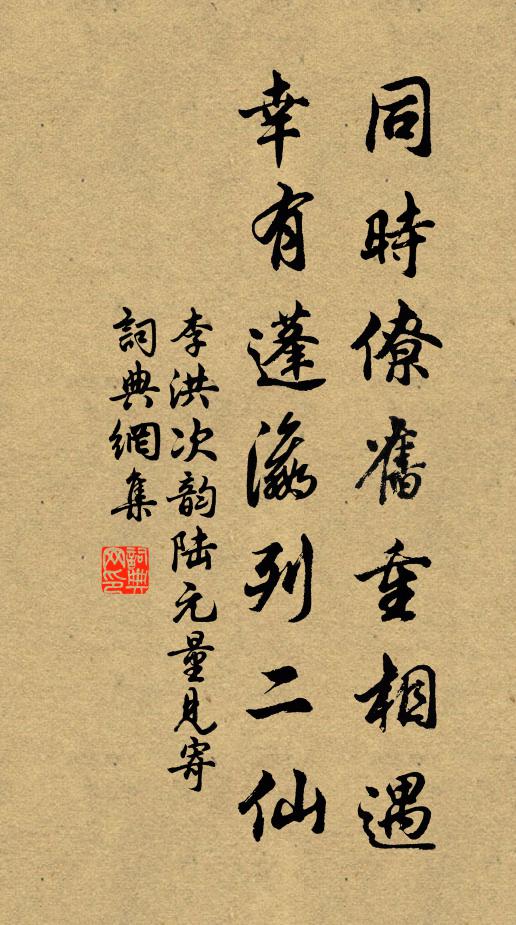 同時僚舊重相遇
幸有蓬瀛列二仙
李洪次韵陆元量見寄
詞典網集
詞典網印